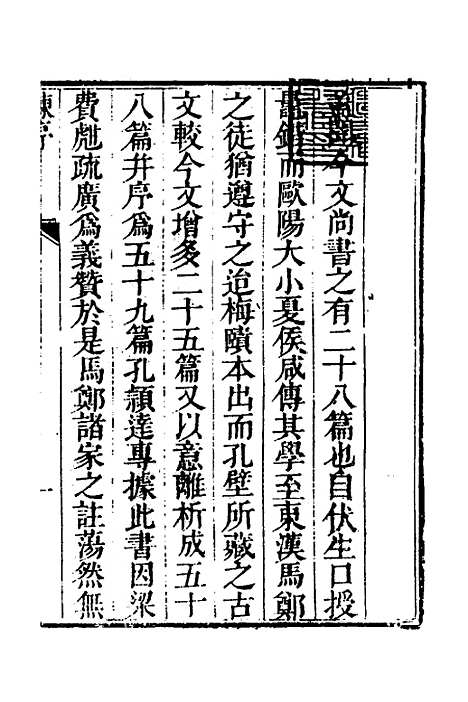 今文尚書之有二十八篇也自伏生口授
鼂錯而歐陽大小夏侯咸傳其學至東漢馬鄭
之徒猶遵守之迨梅賾本出而孔壁所藏之古
文較今文增多二十五篇又以意離析成五十
八篇并序爲五十九篇孔頴達專據此書因梁
費甝疏廣爲義贊於是馬鄭諸家之註蕩然無
陳序
一